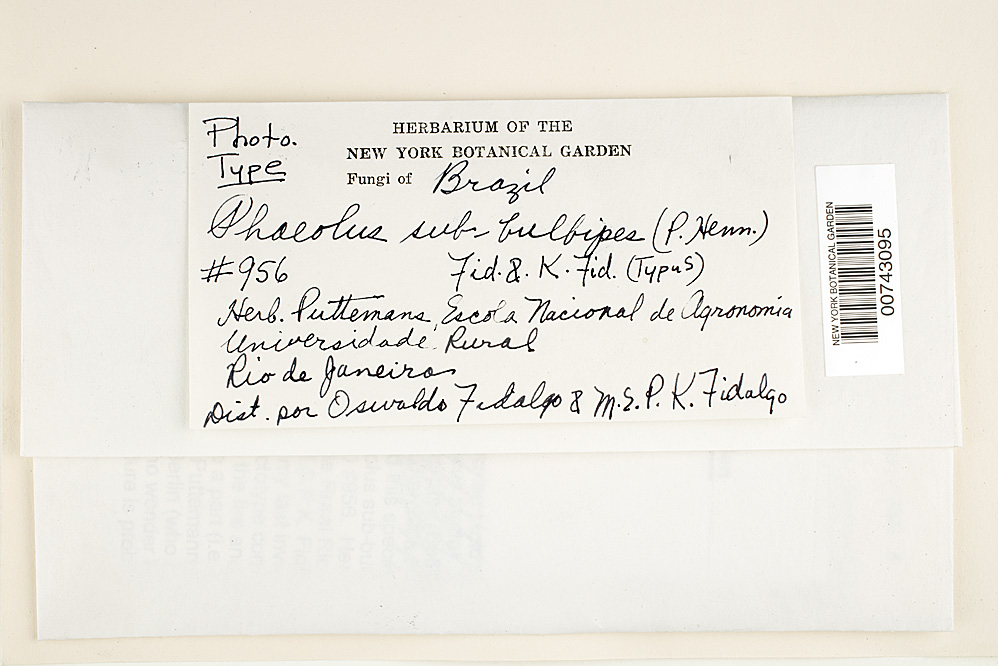 Photo.
Type
HERBARIUM OF THE
NEW YORK BOTANICAL GARDEN
Fungi of Brazil
Phaeolus sub-bulbipes (P. Henn.)
#956 Fid. & K. Fid. (Typus)
Herb. Puttemans, Escola Nacional de Agronomia
Universidade Rural
Rio de Janeiro
Dist. por Oswaldo Fidalgo & M.E.P.K. Fidalgo
NEW YORK BOTANICAL GARDEN
00743095